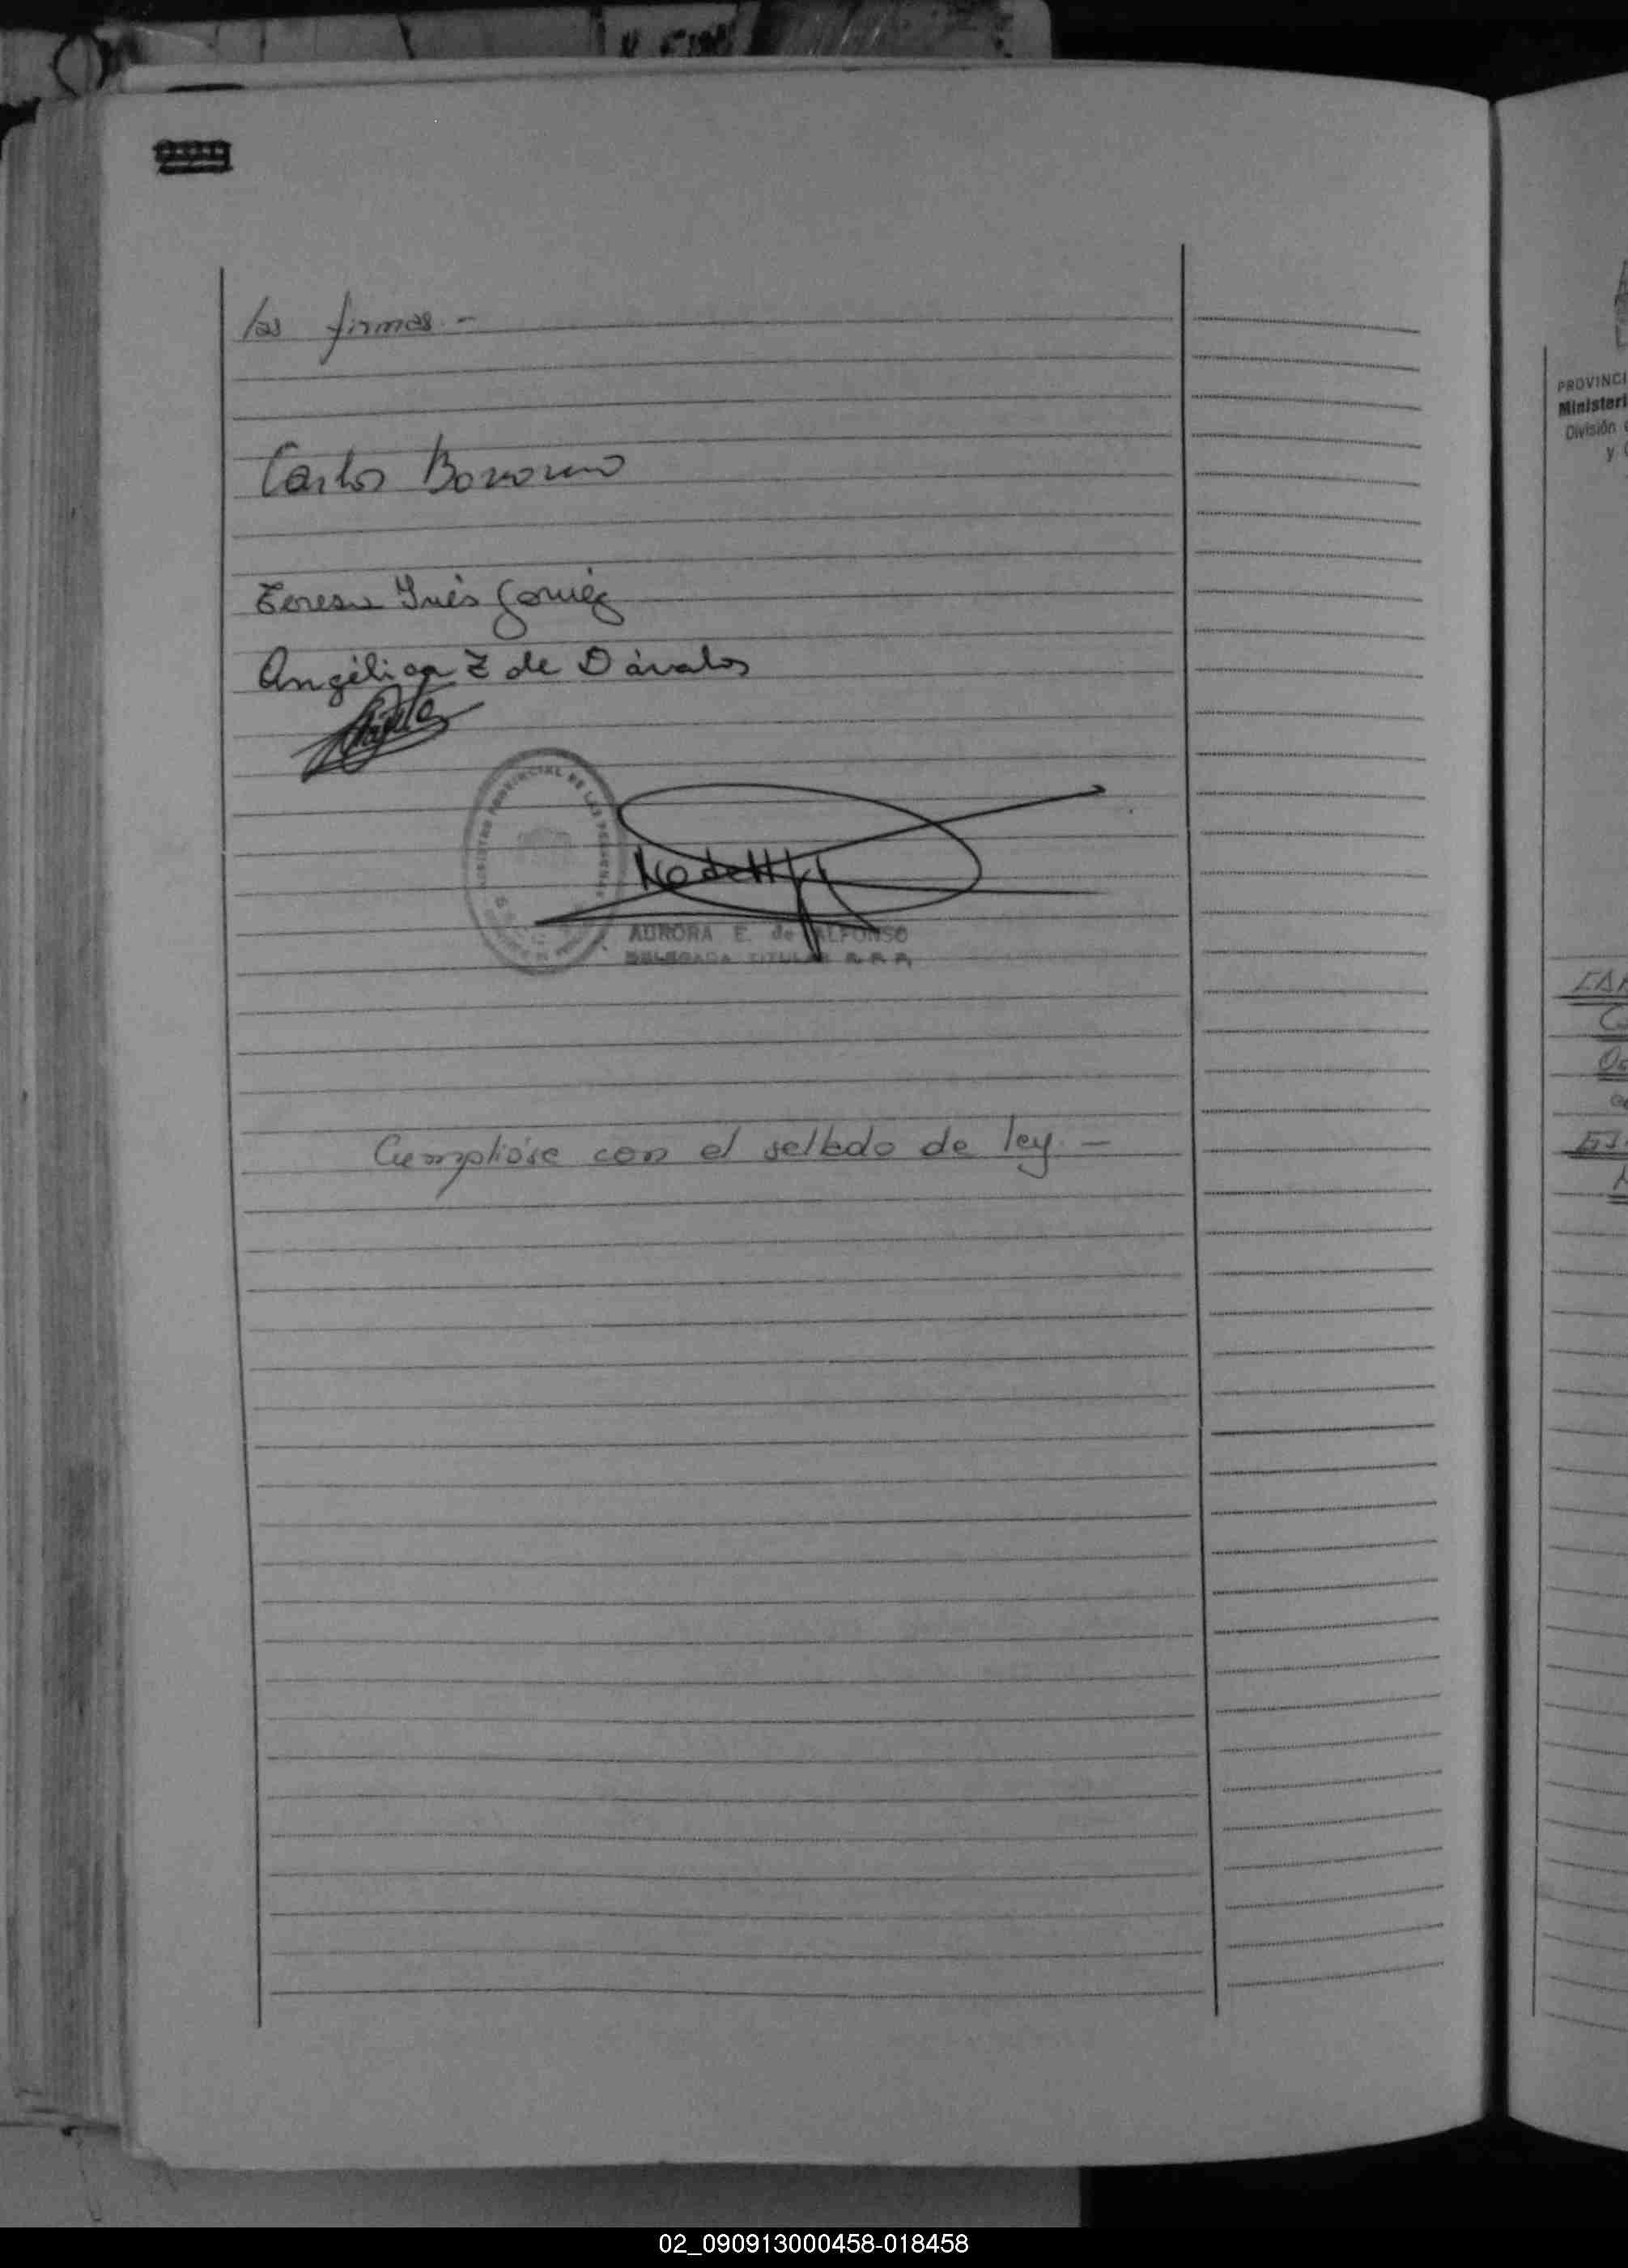 las firmas.-
Carlos
Teresa Inés Gomez
Angélica Z de Dávalos
REGISTRO PROVINCIAL DE LAS PERSONAS
AURORA E. de ALFONSO
DELEGADA TITULAR R. P. P.
Cumplióse con el sellado de ley.-
PROVINCI
Ministeri
División
y
02_090913000458-018458